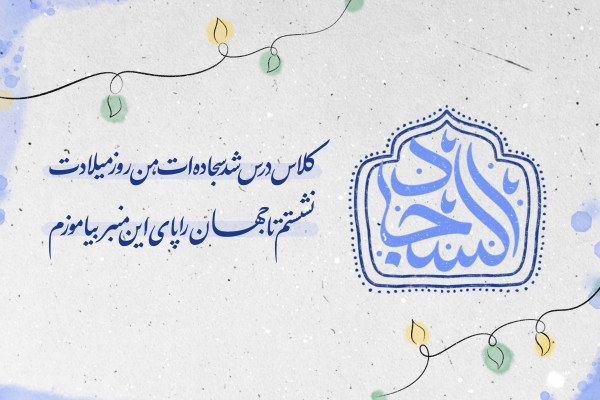 کلاس درس شد سجاده‌ات، من روز میلادت
نشستم تا جهان را پای این منبر بیاموزم
السجاد